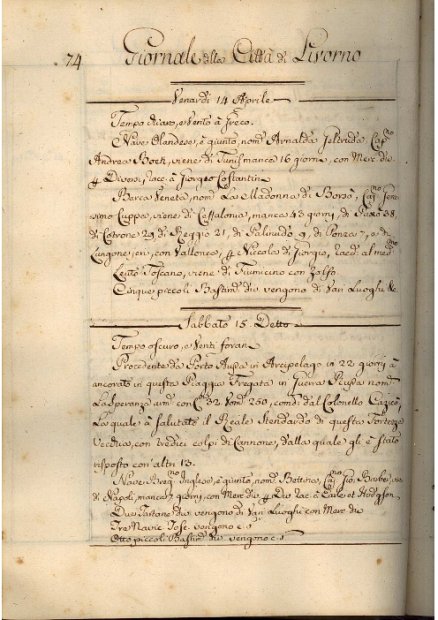 74 Giornale della Città di Livorno
Venardi 14 Aprile
Tempo chiaro, e Vento à freco.
Nave Olandese, è giunto, nom.
Andrea viene di Tunis manca 16 giorni, con Merc. div.
Diversi, racc. à Giorgio Costantin
Barca Veneta, nom. La Madonna di Borsò,
Cuppa, viene di Ceffalonia, manca 43 giorni, di 38,
di Cotrone 29, di Reggio 21, di Palinudo 9, di Ponza 7, e di
con Vallonea, Niccolò di Giorgio, racc. al med.
Leuto Toscano, viene di Fiumicino con Zolfo.
Cinque piccoli Bastim. che vengono di Van Luoghi &c
Sabbato 15 Detto
Tempo oscuro, e Venti forani
Procedente da Porto Ausa in Arcipelago in 22 giorni à
ancorato in questa Piaggia Fregata in Guerra Russa nom.
La Speranza arm. con 32 250, comd. dal Colonello
La quale à salutato il Reale Stendardo di questa Fortezza
Vecchia, con tredici colpi di Cannone, dalla quale gl'è stato
risposto con altri 13.
Nave Inglese, è giunto, nom. Bettina, Gio.
di Napoli, manca 7 giorni, con Merc. div. Div. racc. à Hodgson.
Due Tartane che vengono di Van Luoghi con Merc. div.
Tre Navic. Tosc. vengono c. s.
Otto piccoli Bastim. che vengono c. s.